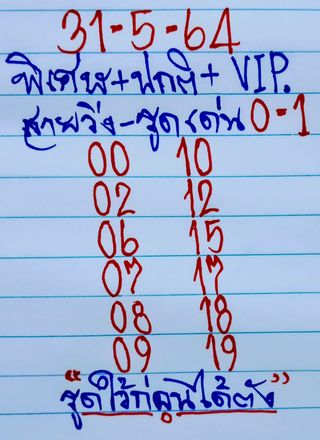 31-5-64
พิเศษ+ปกติ+ VIP.
สายวิ่ง-รูดเด่น 0-1
00 10
02 12
06 15
07 17
08 18
09 19
"รูดไว้ก่อนได้ตัง"